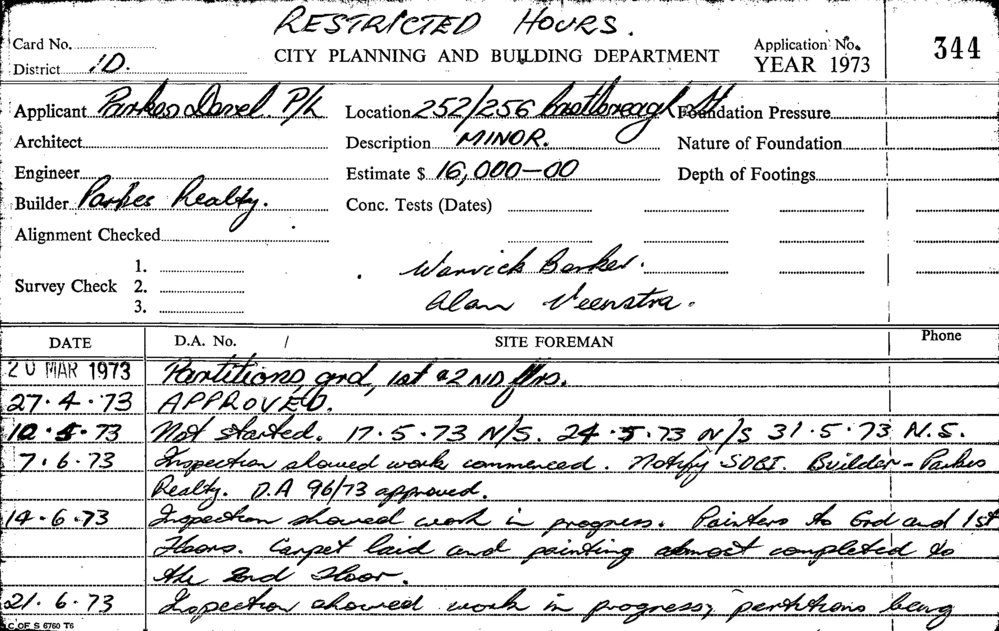 RESTRICTED HOURS.
Card No.
CITY PLANNING AND BUILDING DEPARTMENT
Application No. 344
District 1D.
YEAR 1973
Applicant Parkes Davel P/L Location 252/256 Castlereagh St Foundation Pressure
Architect Description MINOR. Nature of Foundation
Engineer Estimate $ 16,000-00 Depth of Footings
Builder Parkes Realty. Conc. Tests (Dates)
Alignment Checked
Survey Check 1. 2. 3.
Warwick Barker.
Alan Veenstra.
DATE D.A. No. / SITE FOREMAN Phone
20 MAR 1973 Partitions, grd, 1st & 2ND flrs.
27.4.73 APPROVED.
10.5.73 Not started. 17.5.73 N/S. 24.5.73 N/S 31.5.73 N.S.
7.6.73 Inspection showed work commenced. Notify SDBI. Builder - Parkes
Realty. D.A 96/73 approved.
14.6.73 Inspection showed work in progress. Painters to Grd and 1st
Floors. Carpet laid and painting almost completed to
the 2nd Floor.
21.6.73 Inspection showed work in progress, partitions being
C OF S 6760 T6